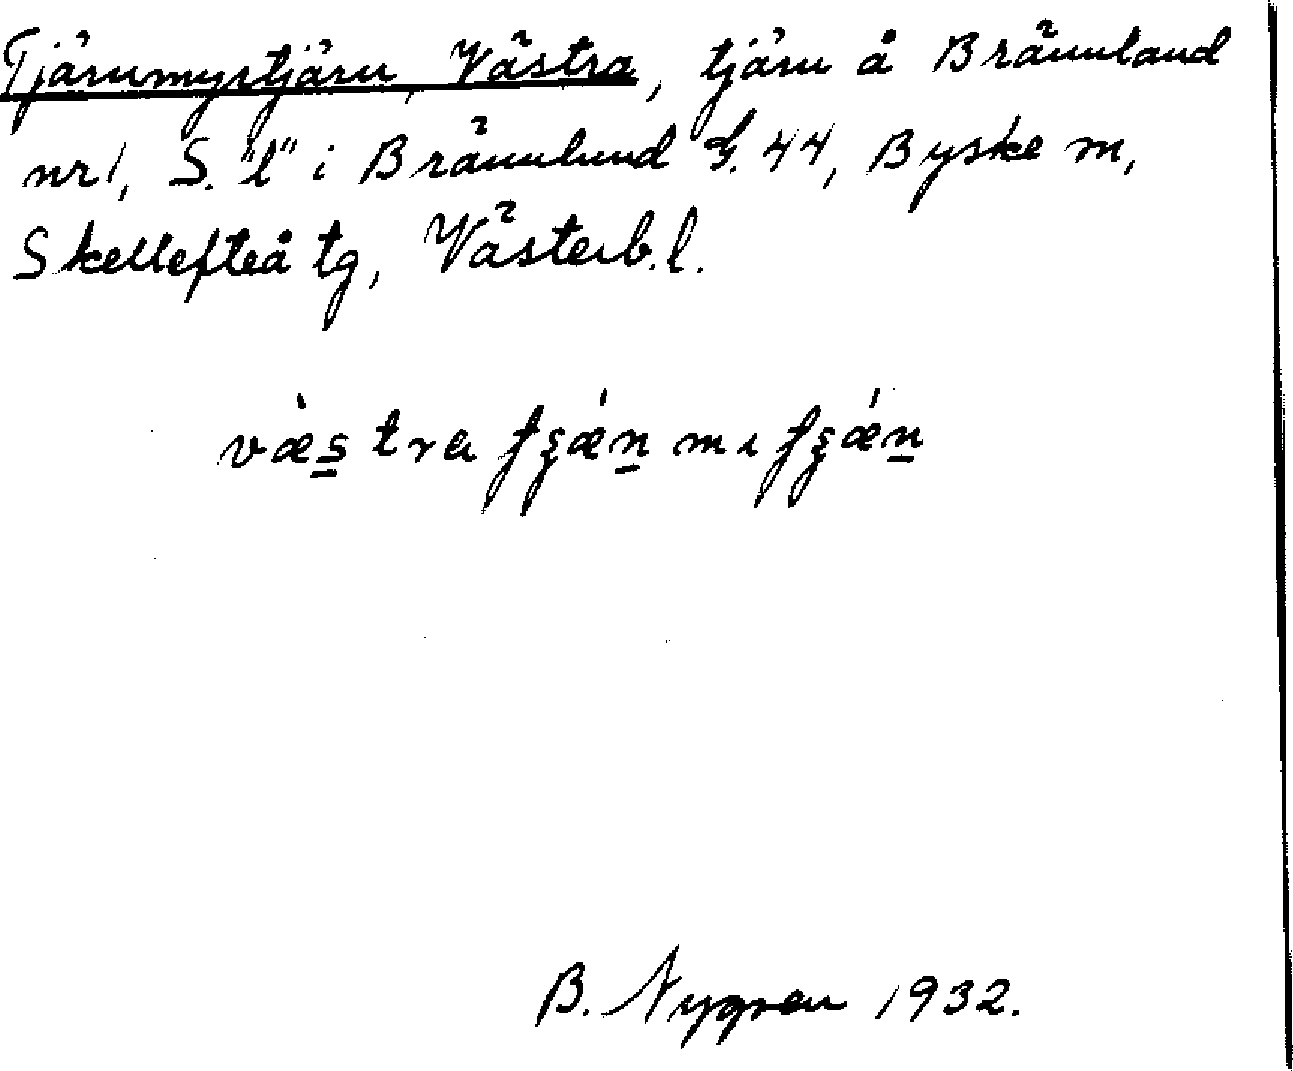 Tjärnmyrtjärn, Västra, tjärn å Brännland
nr 1, S. "l" i Brännlund g. 44, Byske m,
Skellefteå tg, Västerb.l.
B. Nygren 1932.